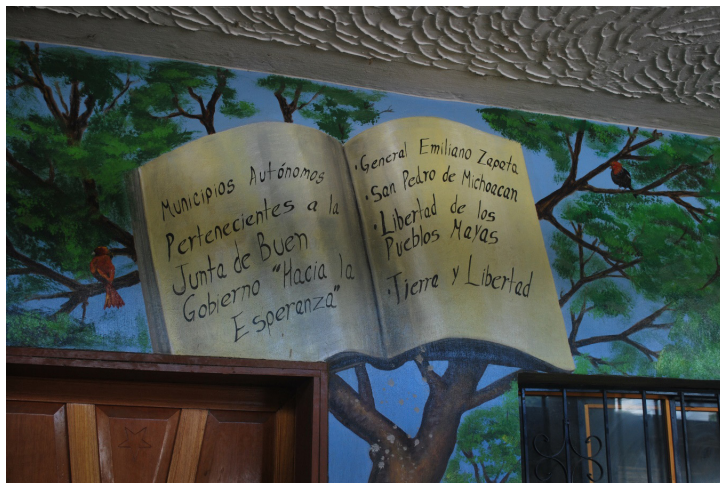 Municipios Autónomos
Pertenecientes a la
Junta de Buen
Gobierno "Hacia la
Esperanza"
·General Emiliano Zapata
·San Pedro de Michoacan
·Libertad de los
Pueblos Mayas
·Tierra y Libertad